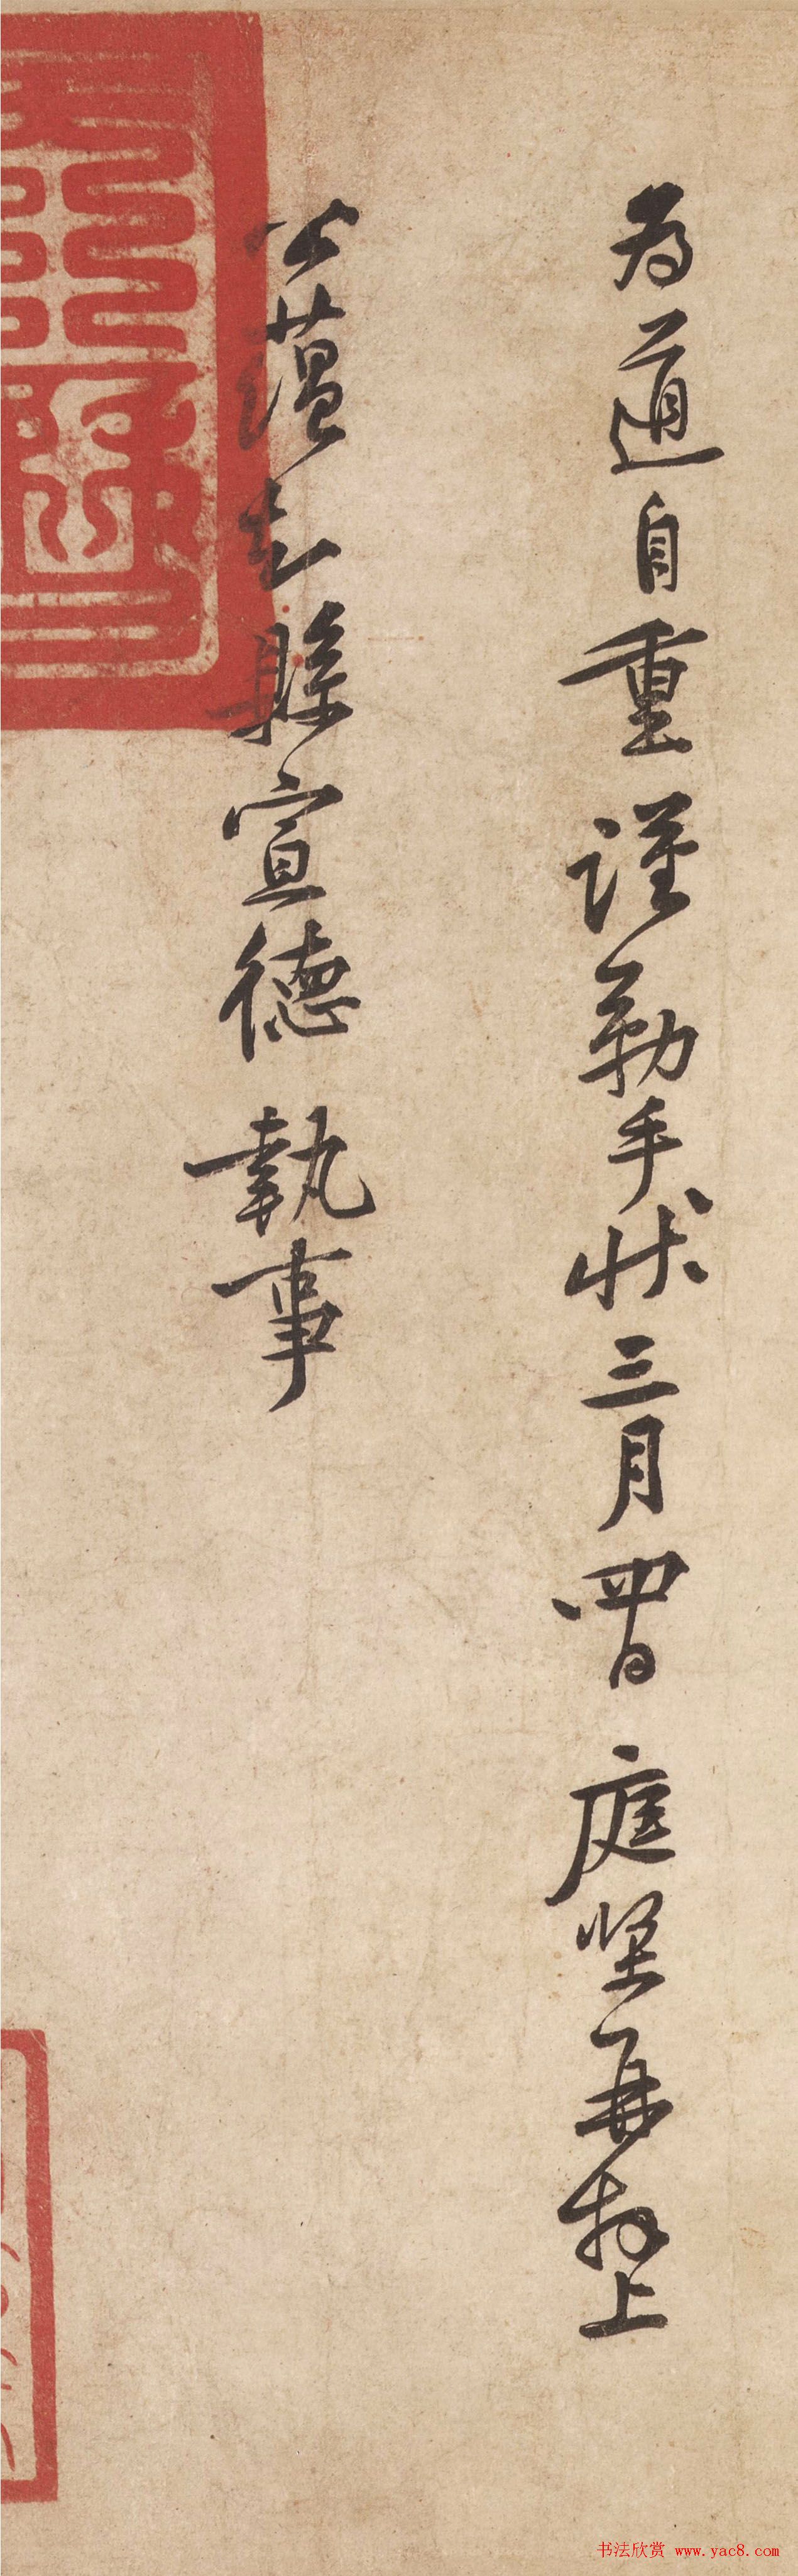 为道自重谨勒手状三月四日庭坚再拜上
公蕴知縣宣德執事
书法欣赏 www.yac8.com